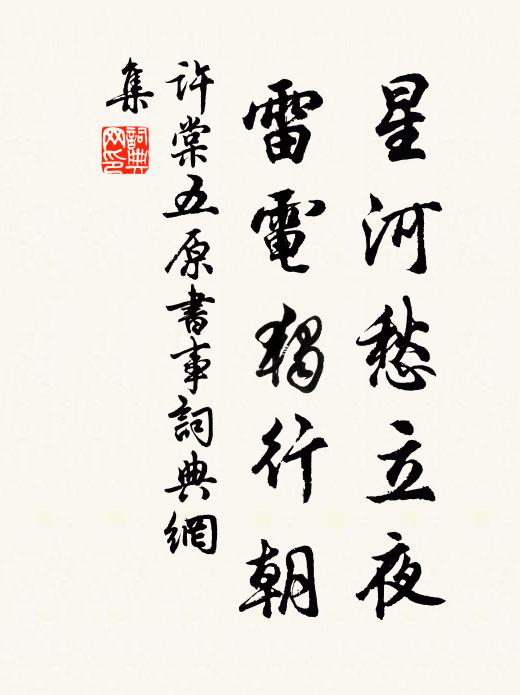 星河愁立夜
雷電獨行朝
許棠五原書事詞典網
集
詞典網印